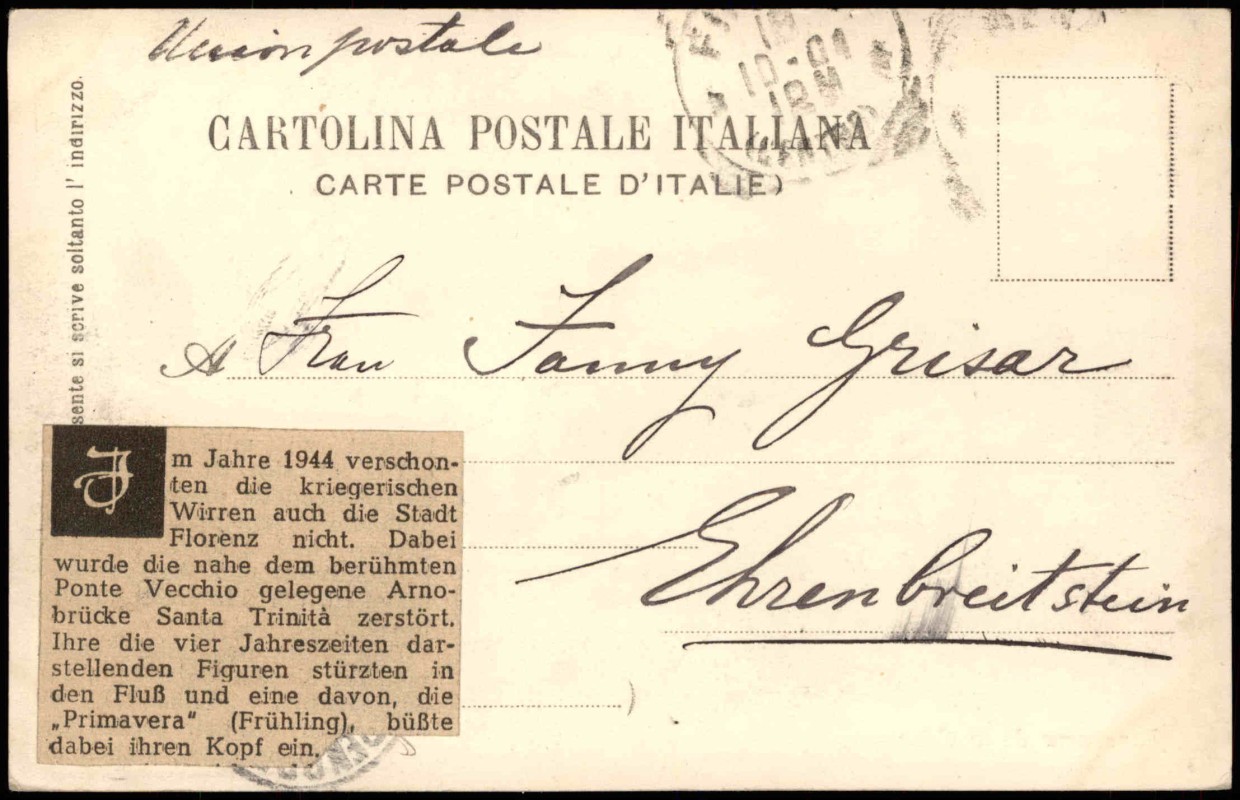 Union postale
10-01
18M
CARTOLINA POSTALE ITALIANA
CARTE POSTALE D'ITALIE)
sente si scrive soltanto l'indirizzo.
A Frau Fanny Grisar
Ehrenbreitstein
Im Jahre 1944 verschon-
ten die kriegerischen
Wirren auch die Stadt
Florenz nicht. Dabei
wurde die nahe dem berühmten
Ponte Vecchio gelegene Arno-
brücke Santa Trinità zerstört.
Ihre die vier Jahreszeiten dar-
stellenden Figuren stürzten in
den Fluß und eine davon, die
„Primavera" (Frühling), büßte
dabei ihren Kopf ein.